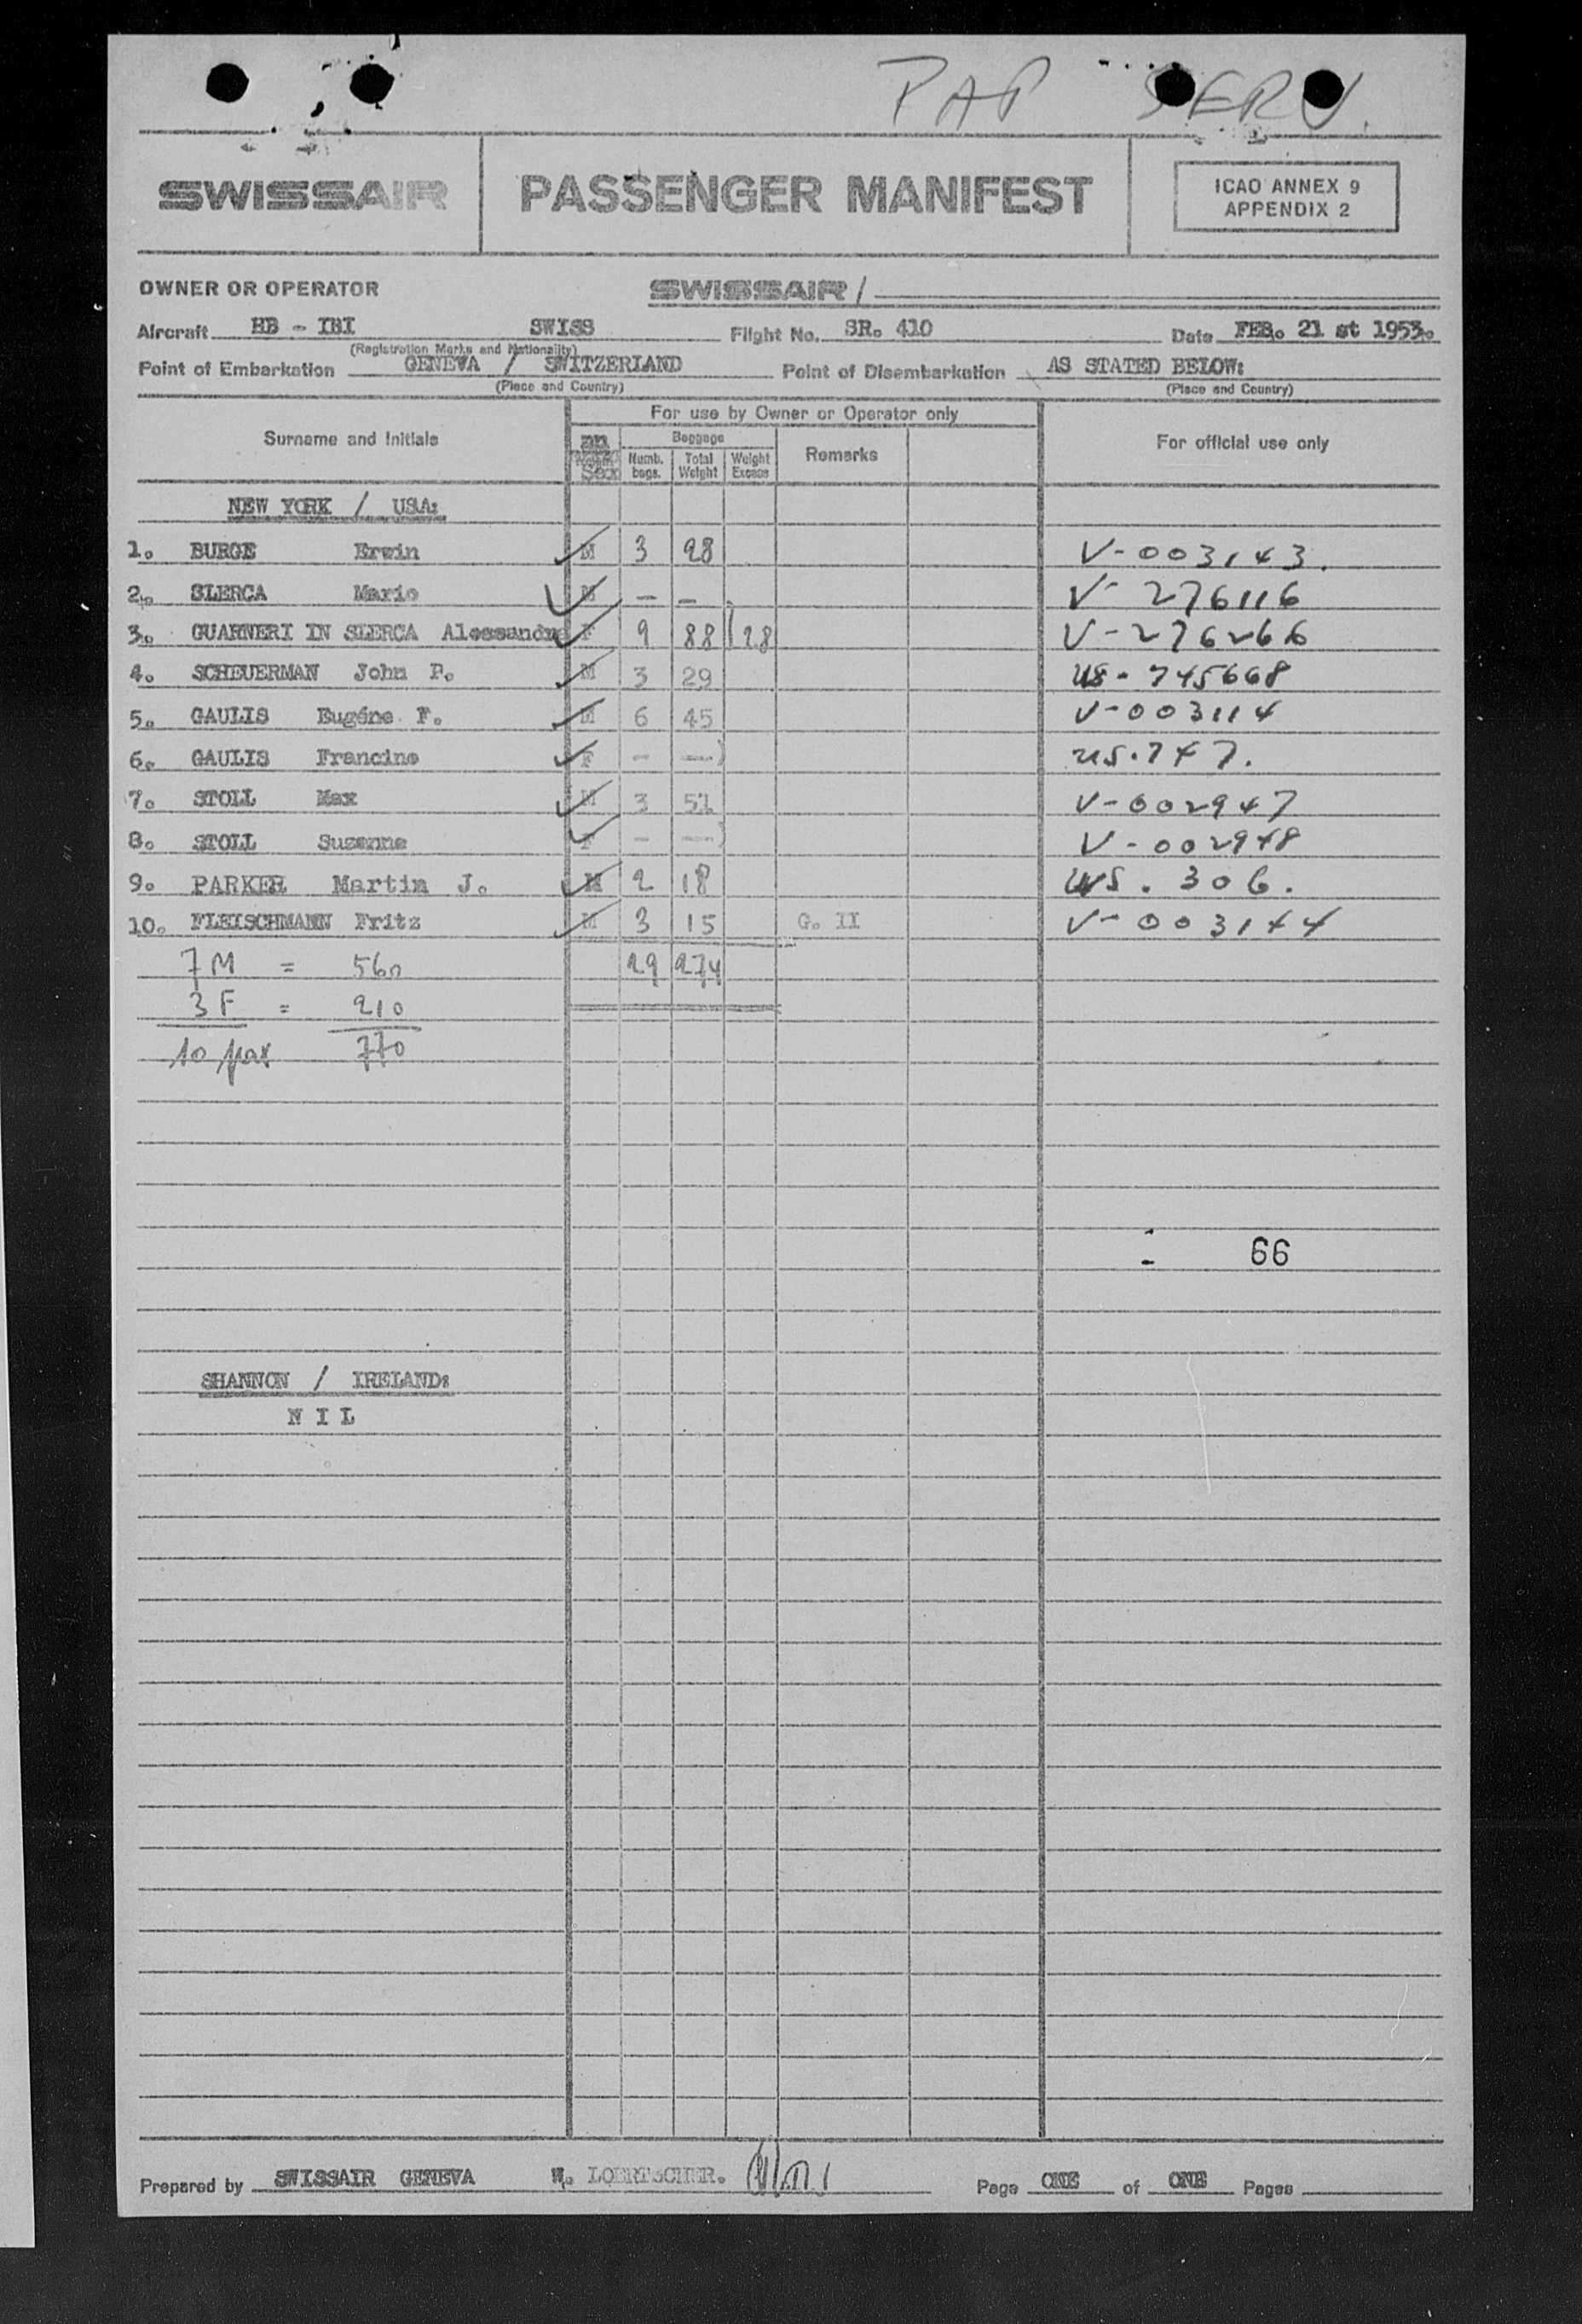 PAP SERV.
SWISSAIR PASSENGER MANIFEST ICAO ANNEX 9
APPENDIX 2
OWNER OR OPERATOR SWISSAIR /
Aircraft HB - IBI SWISS Flight No. SR. 410 Date FEB. 21 st 1953.
(Registration Marks and Nationality)
Point of Embarkation GENEVA / SWITZERLAND Point of Disembarkation AS STATED BELOW:
(Place and Country) (Place and Country)
For use by Owner or Operator only
Surname and Initials Sex Baggage Remarks For official use only
Numb. bags. Total Weight Weight Excess
NEW YORK / USA:
1. BURGE Erwin M 3 28 V-003143.
2. SLERCA Mario M — — V-276116
3. GUARNERI IN SLERCA Alessandra F 9 88 28 V-276266
4. SCHEUERMAN John P. M 3 29 US-745668
5. GAULIS Eugéne F. M 6 45 V-003114
6. GAULIS Francine F — —) US.747.
7. STOLL Max M 3 51 V-002947
8. STOLL Suzanne F — —) V-002948
9. PARKER Martin J. M 2 18 US. 306.
10. FLEISCHMANN Fritz M 3 15 G. II V-003144
7 M = 560 29 274
3 F = 210
10 pax 770
66
SHANNON / IRELAND:
N I L
Prepared by SWISSAIR GENEVA W. LOERTSCHER. Page ONE of ONE Pages